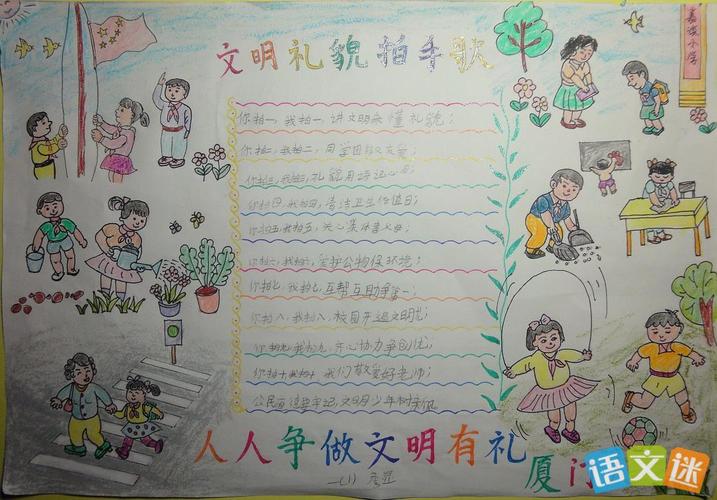 文明礼貌拍手歌
嘉滨小学
你拍一,我拍一,讲文明来懂礼貌;
你拍二,我拍二,同学团结友爱;
你拍三,我拍三,礼貌用语记心
你拍四,我拍四,清洁卫生值日;
你拍五,我拍五,关心集体尊父母;
你拍六,我拍六,爱护公物保环境;
你拍七,我拍七,互帮互助争第一;
你拍八,我拍八,校园开遍文明花;
你拍九,我拍九,齐心协力争创优;
你拍十,我拍十,我们敬爱好老师;
公民道德要牢记,文明少年树新风
人人争做文明有礼厦门
一(1)
语文迷